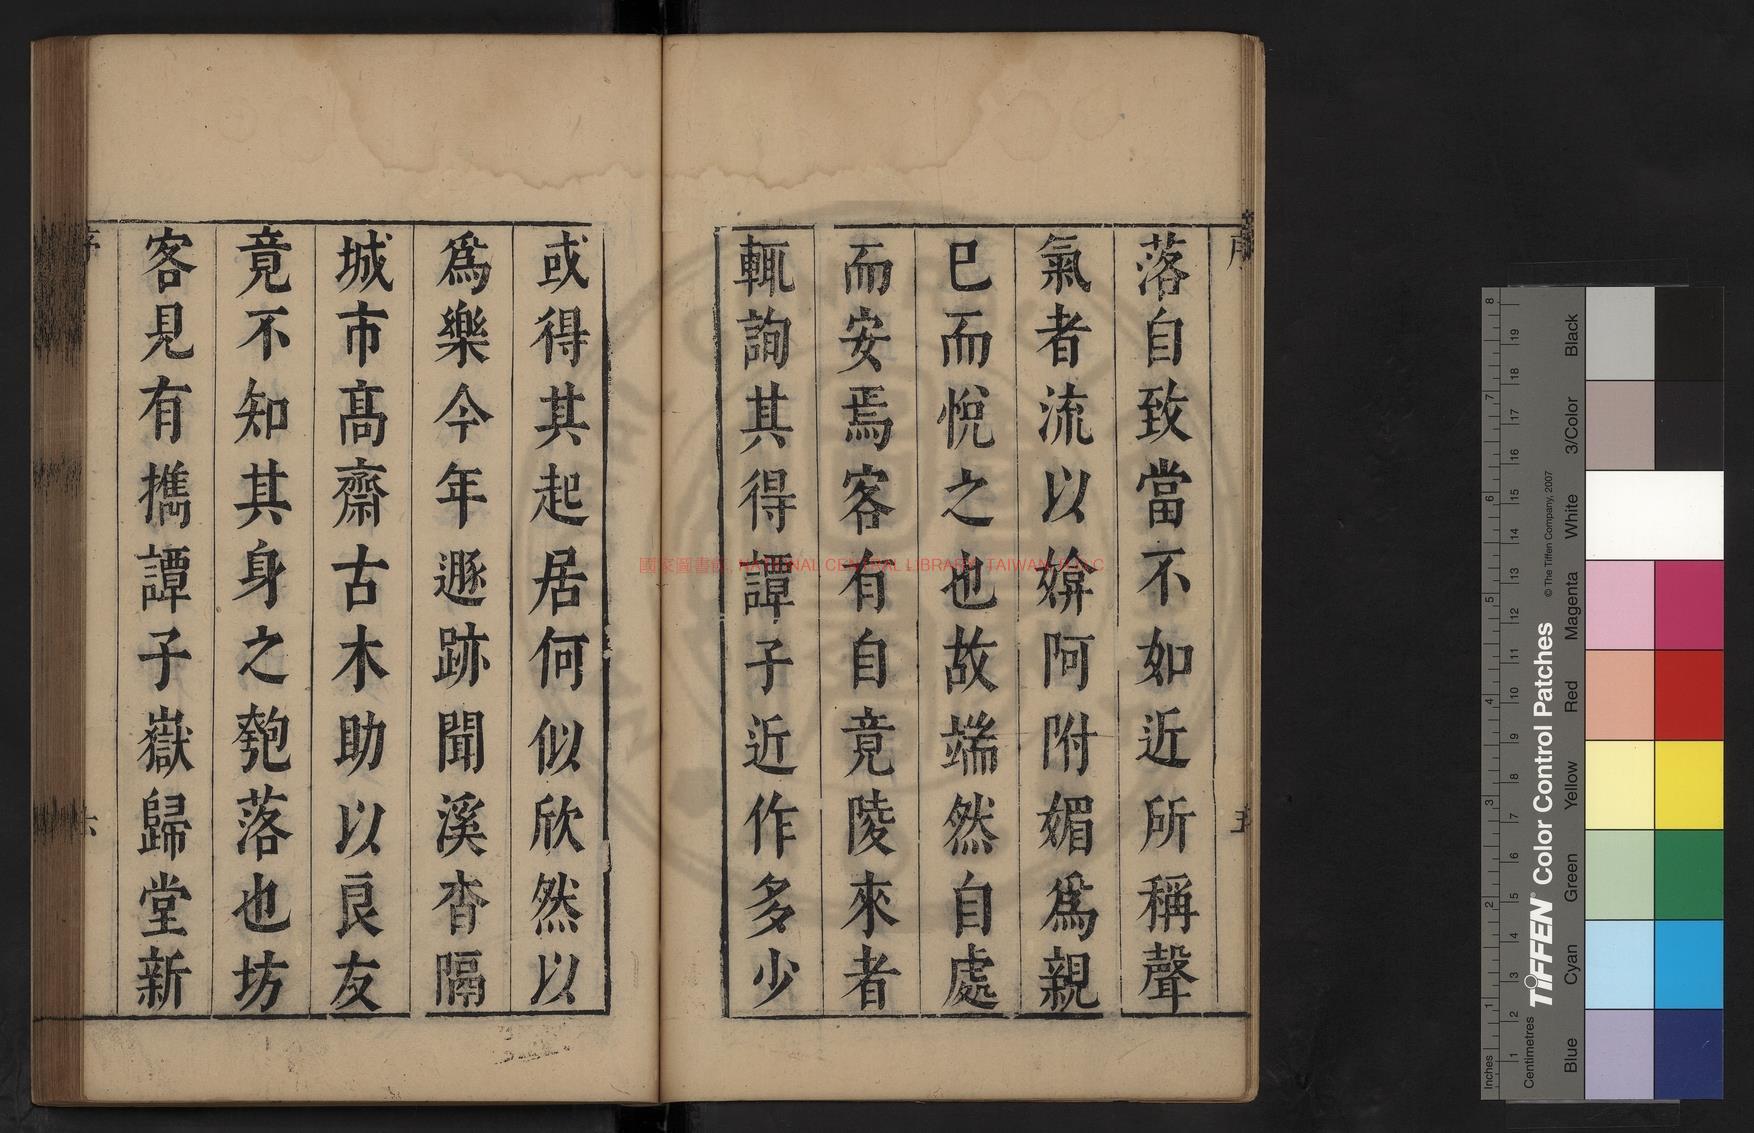 落自致當不如近所稱聲
氣者流以媕阿附媚為親
已而悅之也故端然自處
而安焉客有自竟陵來者
輒詢其得譚子近作多少
或得其起居何似欣然以
為樂今年遯跡聞溪杳隔
城市高齋古木助以良友
竟不知其身之匏落也坊
客見有攜譚子嶽歸堂新
序
五
序
六
國家圖書館, NATIONAL CENTRAL LIBRARY, TAIWAN, R.O.C
Inches
Centimetres
TIFFEN® Color Control Patches
© The Tiffen Company, 2007
Blue
Cyan
Green
Yellow
Red
Magenta
White
3/Color
Black